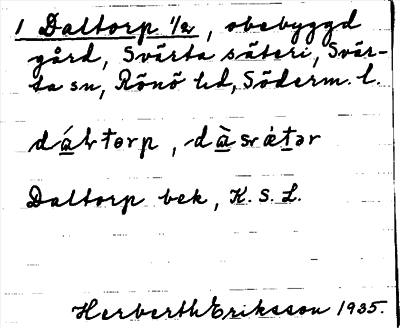 1 Daltorp 1/2, obebyggd
gård, Svärta säteri, Svär-
ta sn, Rönö hd, Söderm. l.
Daltorp bek, K. S. L.
Herbert Eriksson 1935.